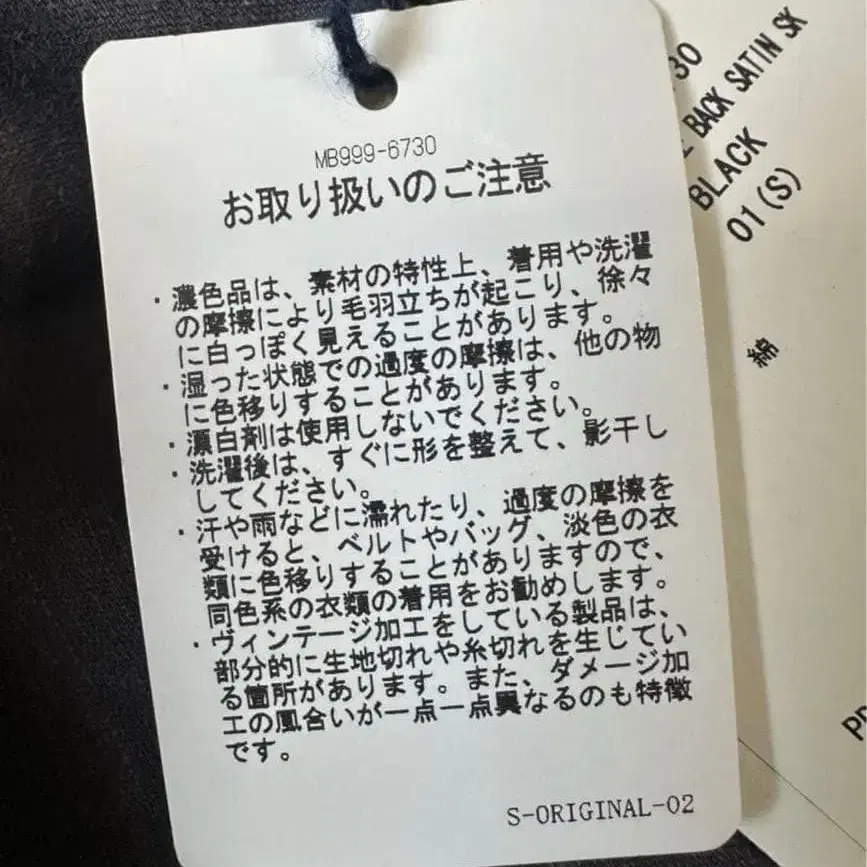 MB999-6730
お取り扱いのご注意
・濃色品は、素材の特性上、着用や洗濯
の摩擦により毛羽立ちが起こり、徐々
に白っぽく見えることがあります。
・湿った状態での過度の摩擦は、他の物
に色移りすることがあります。
・漂白剤は使用しないでください。
・洗濯後は、すぐに形を整えて、影干し
してください。
・汗や雨などに濡れたり、過度の摩擦を
受けると、ベルトやバッグ、淡色の衣
類に色移りすることがありますので、
同色系の衣類の着用をお勧めします。
・ヴィンテージ加工をしている製品は、
部分的に生地切れや糸切れを生じてい
る箇所があります。また、ダメージ加
工の風合いが一点一点異なるのも特徴
です。
S-ORIGINAL-02
30
BACK SATIN SK
BLACK
01(S)
綿